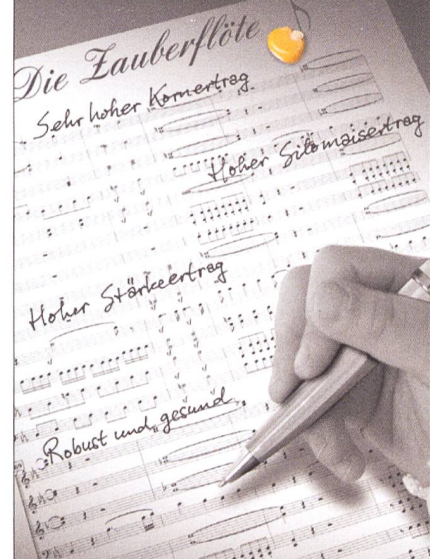 Die Zauberflöte
Sehr hoher Kornertrag
Hoher Silomaisertrag
Hoher Stärkeertrag
Robust und gesund